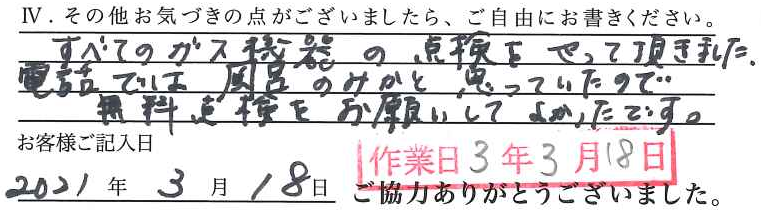 Ⅳ．その他お気づきの点がございましたら、ご自由にお書きください。
すべてのガス機器の点検をやって頂きました。
電話では風呂のみかと思っていたので
無料点検をお願いしてよかったです。
お客様ご記入日
作業日 3年3月18日
2021年3月18日 ご協力ありがとうございました。